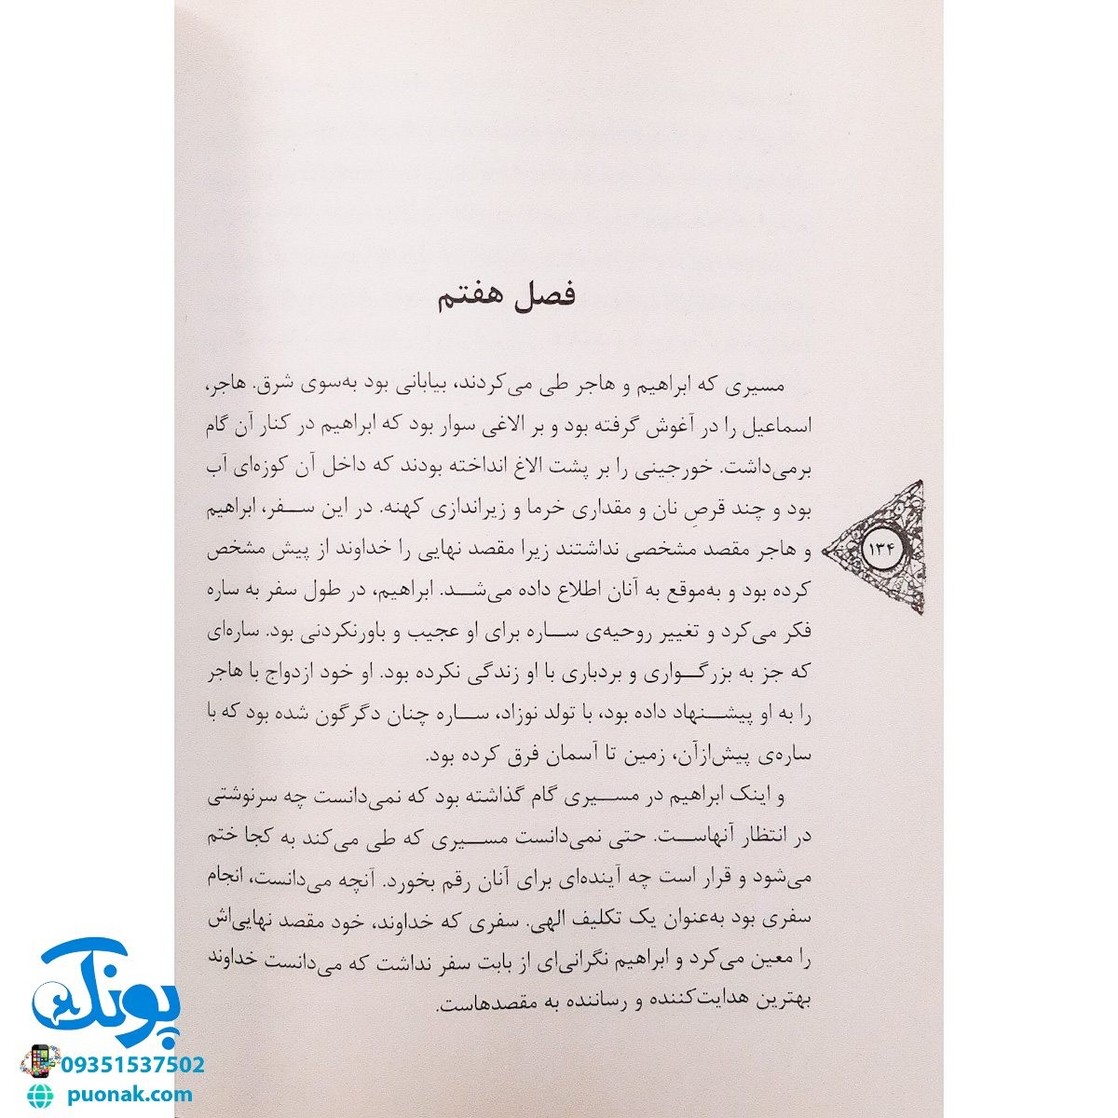 فصل هفتم
مسیری که ابراهیم و هاجر طی می‌کردند، بیابانی بود به‌سوی شرق. هاجر،
اسماعیل را در آغوش گرفته بود و بر الاغی سوار بود که ابراهیم در کنار آن گام
برمی‌داشت. خورجینی را بر پشت الاغ انداخته بودند که داخل آن کوزه‌ای آب
بود و چند قرصِ نان و مقداری خرما و زیراندازی کهنه. در این سفر، ابراهیم
و هاجر مقصد مشخصی نداشتند زیرا مقصد نهایی را خداوند از پیش مشخص
کرده بود و به‌موقع به آنان اطلاع داده می‌شد. ابراهیم، در طول سفر به ساره
فکر می‌کرد و تغییر روحیه‌ی ساره برای او عجیب و باورنکردنی بود. ساره‌ای
که جز به بزرگواری و بردباری با او زندگی نکرده بود. او خود ازدواج با هاجر
را به او پیشنهاد داده بود، با تولد نوزاد، ساره چنان دگرگون شده بود که با
ساره‌ی پیش‌ازآن، زمین تا آسمان فرق کرده بود.
و اینک ابراهیم در مسیری گام گذاشته بود که نمی‌دانست چه سرنوشتی
در انتظار آنهاست. حتی نمی‌دانست مسیری که طی می‌کند به کجا ختم
می‌شود و قرار است چه آینده‌ای برای آنان رقم بخورد. آنچه می‌دانست، انجام
سفری بود به‌عنوان یک تکلیف الهی. سفری که خداوند، خود مقصد نهایی‌اش
را معین می‌کرد و ابراهیم نگرانی‌ای از بابت سفر نداشت که می‌دانست خداوند
بهترین هدایت‌کننده و رساننده به مقصدهاست.
۱۳۴
پونک
09351537502
puonak.com